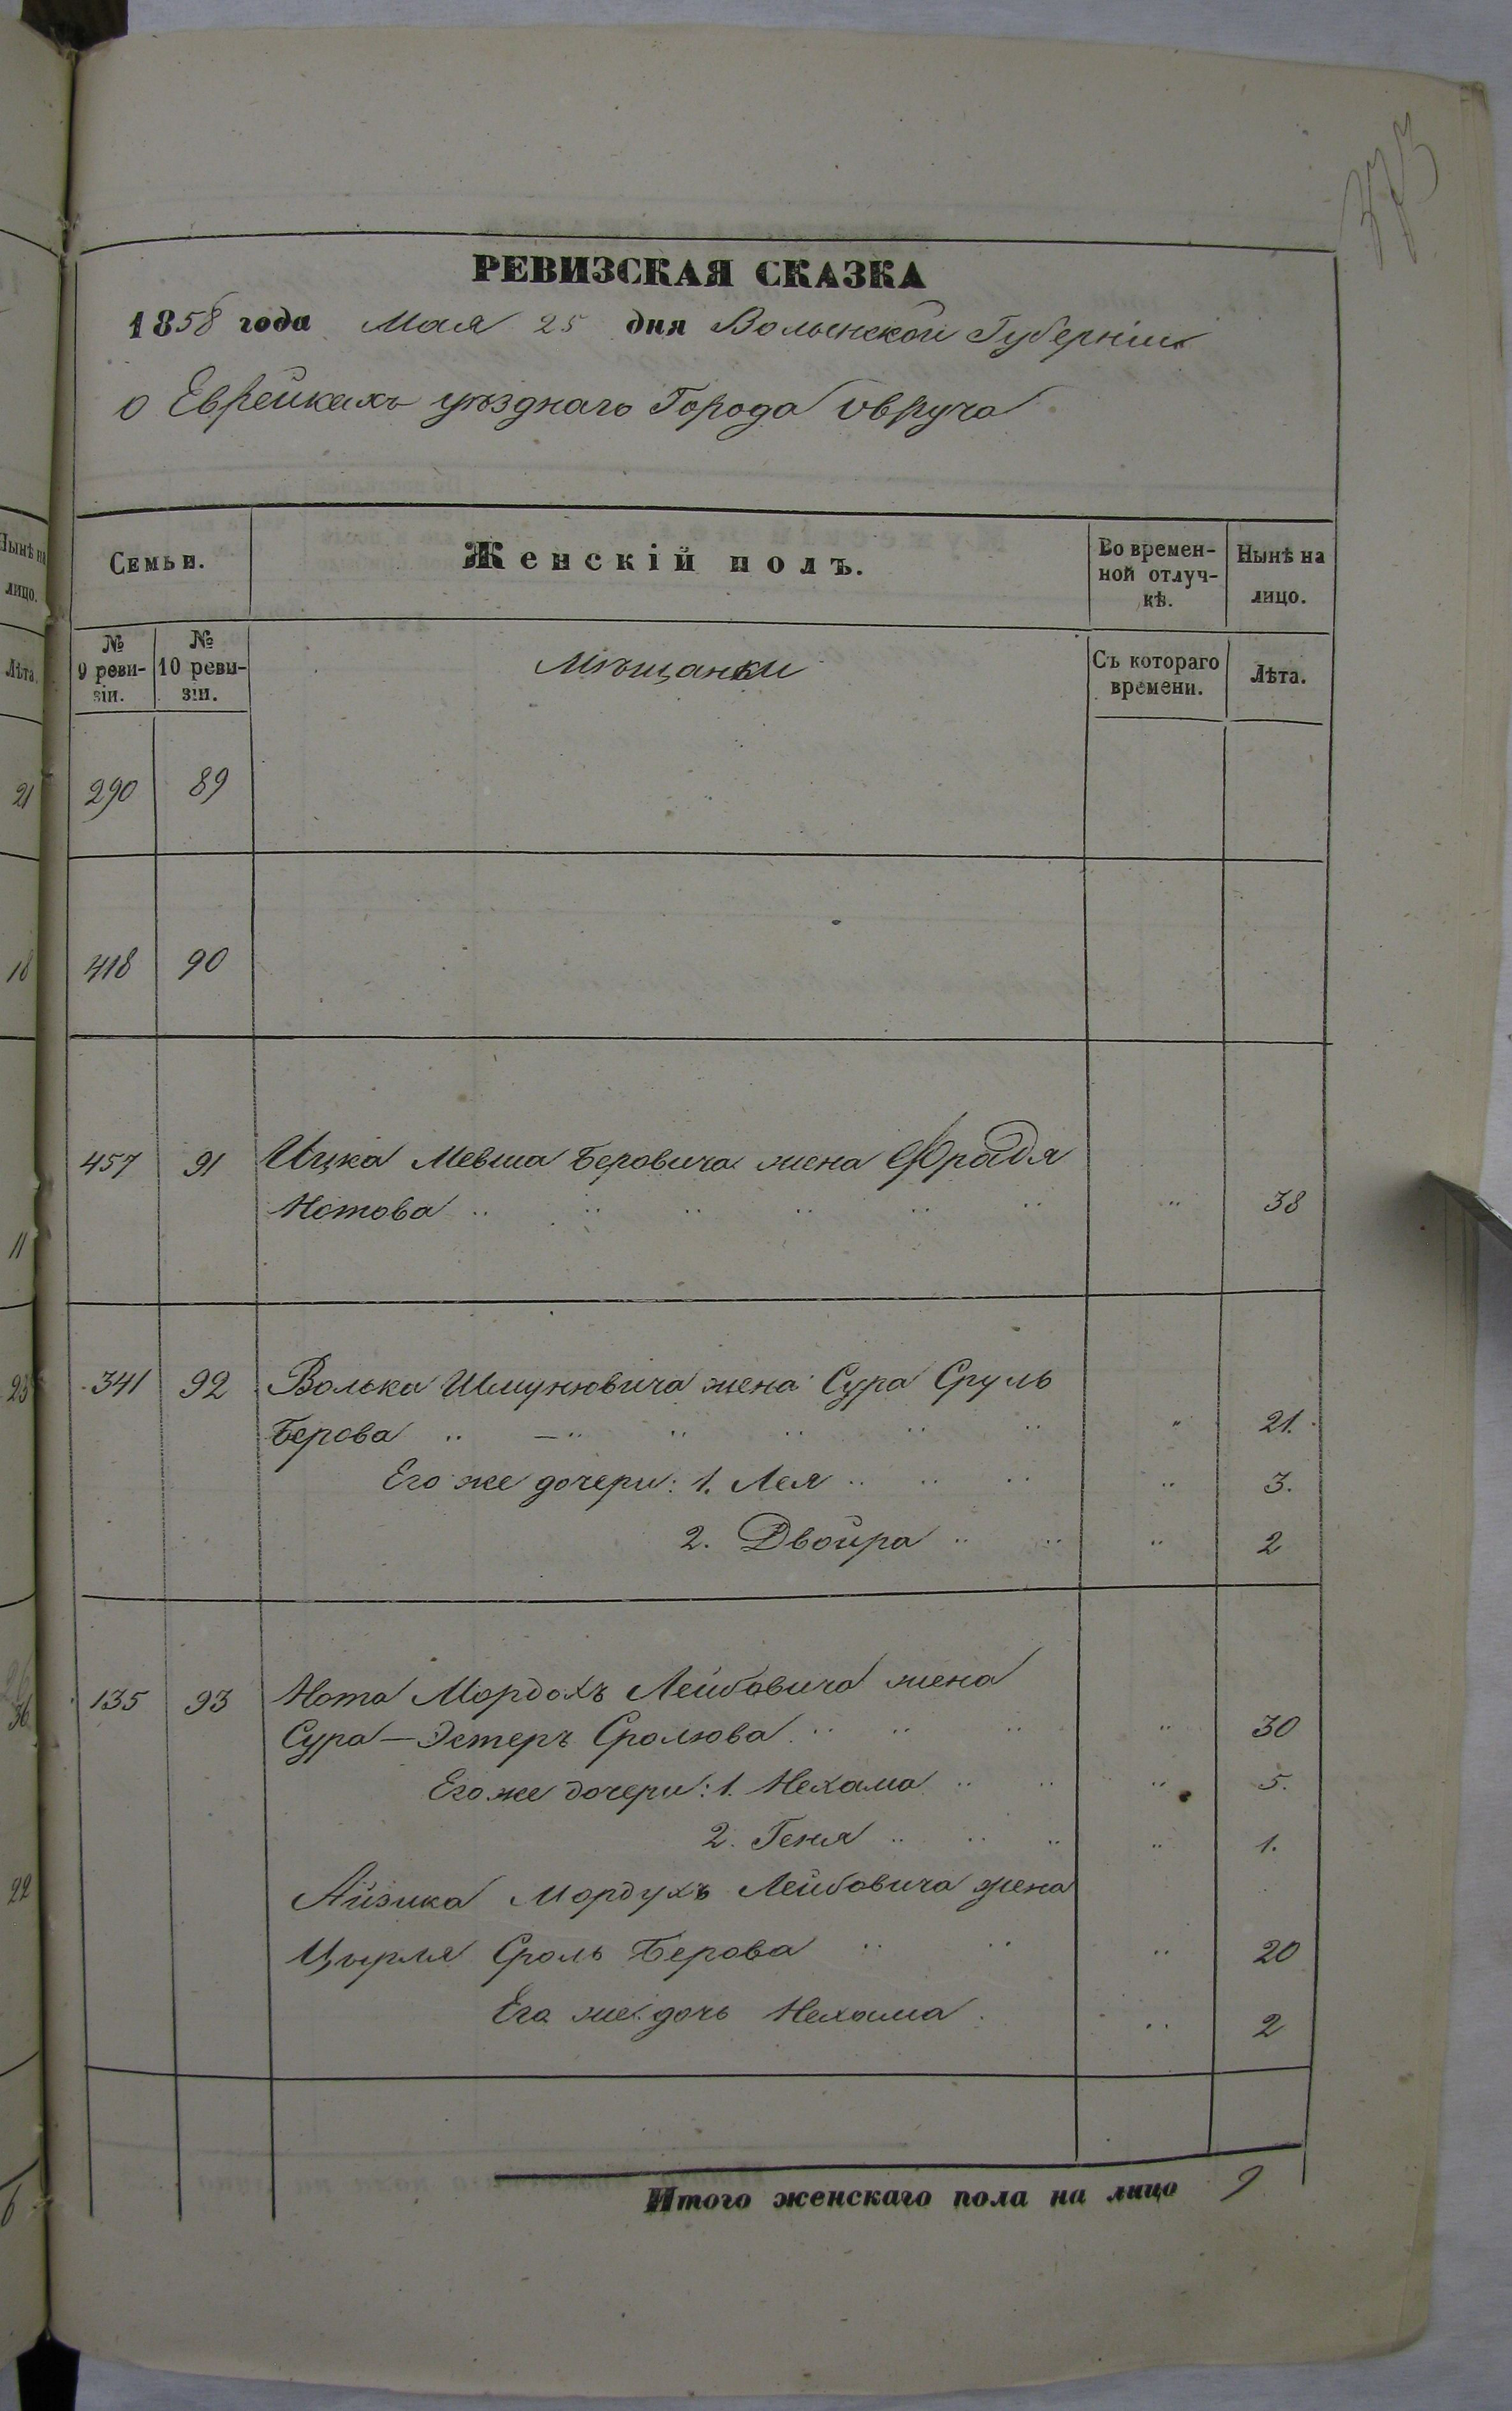 373
РЕВИЗСКАЯ СКАЗКА
1858 года Мая 25 дня Волынской Губерніи
о Еврейкахъ уѣзднаго Города Овруча
Нынѣ на
лицо.
Лѣта.
21
18
11
23
36
22
Семьи.
Женскій полъ.
Во времен-
ной отлуч-
кѣ.
Нынѣ на
лицо.
№
9 реви-
зіи.
№
10 реви-
зіи.
Мѣщанки
Съ котораго
времени.
Лѣта.
290 89
418 90
457 91 Ицка Мевша Беровича жена Фрадя
Нотова 38
341 92 Волька Шмуновича жена Сура Сруль
Берова 21.
Его же дочери: 1. Лея 3.
2. Двойра 2
135 93 Нота Мордохъ Лейбовича жена
Сура-Эстеръ Сролюва 30
Его же дочери: 1. Нехама 5.
2. Геня 1.
Айзика Мордухъ Лейбовича жена
Цырля Сроль Берова 20
Его же дочь Нехама 2
Итого женскаго пола на лицо 9